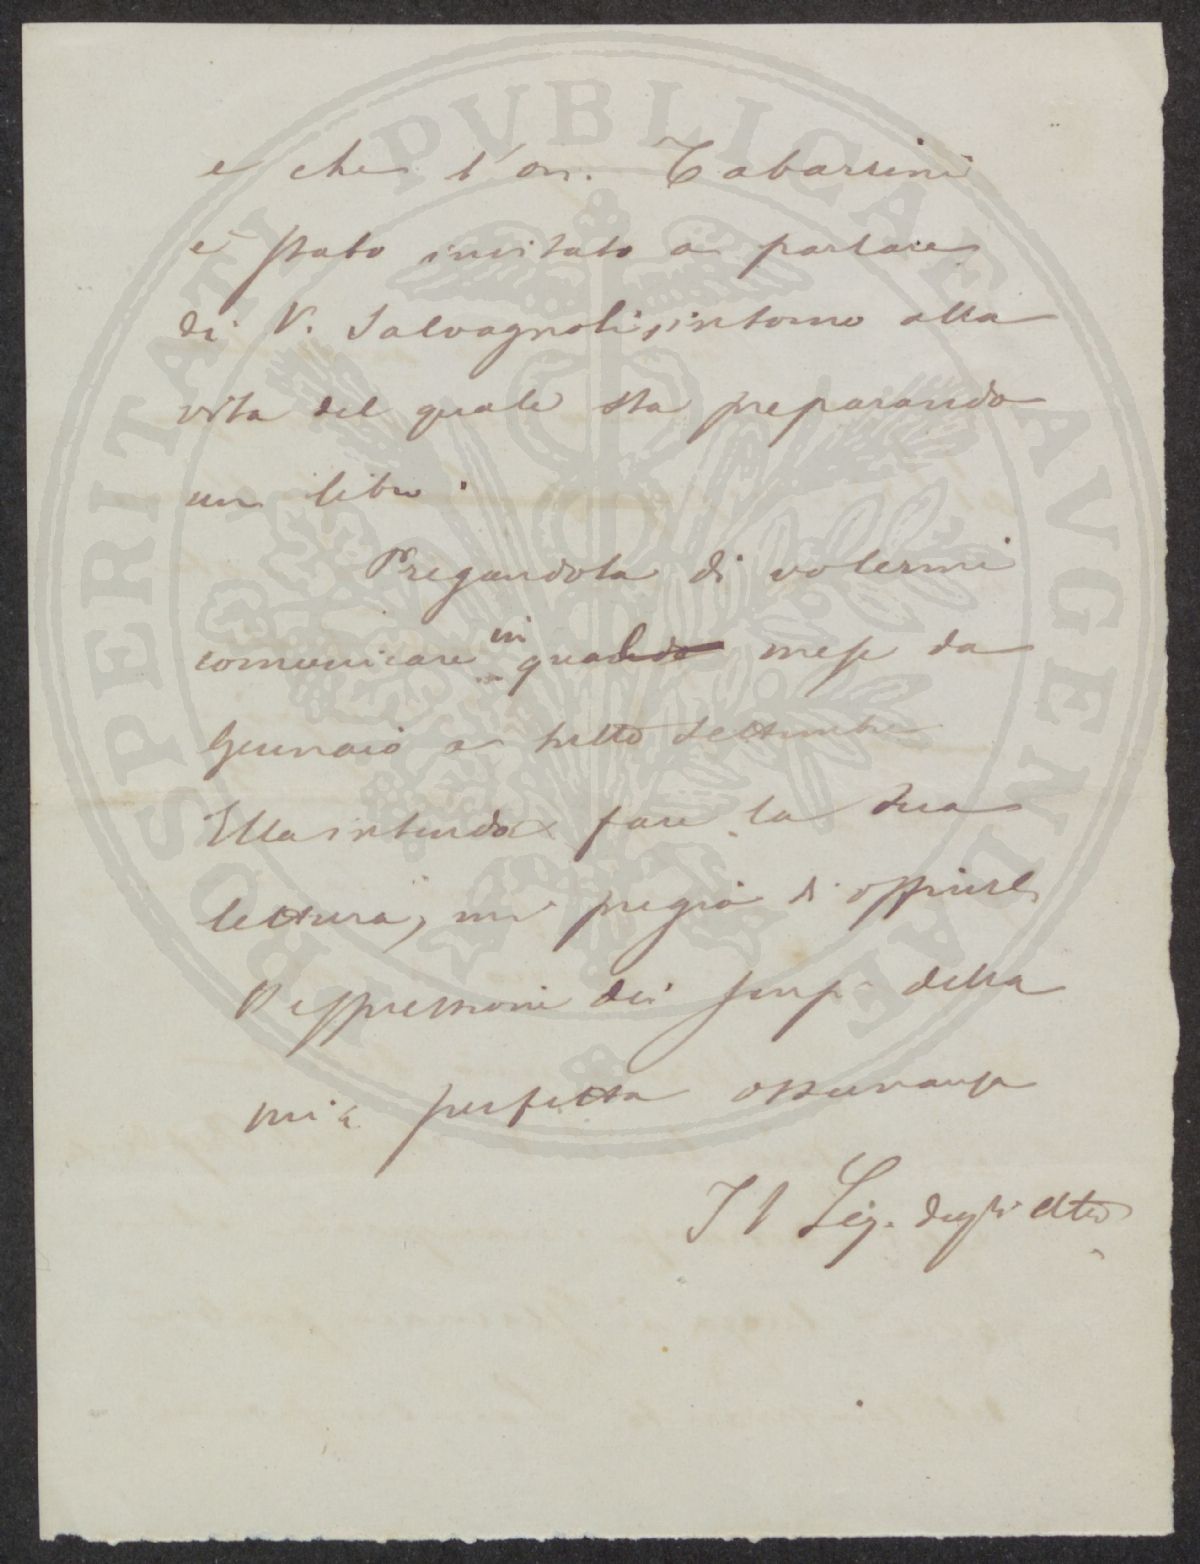 e che l'on. Tabarrini
è stato invitato a parlare
di V. Salvagnoli, intorno alla
vita del quale sta preparando
un libro.
Pregandola di volermi
comunicare in quale mese da
Gennaio a tutto Settembre
Ella intenda fare la Sua
lettura, mi pregio di offrirle
l'espressione dei sensi della
mia perfetta osservanza
Il Seg. degli Atti
PROSPERITATI PVBLICAE AVGENDAE